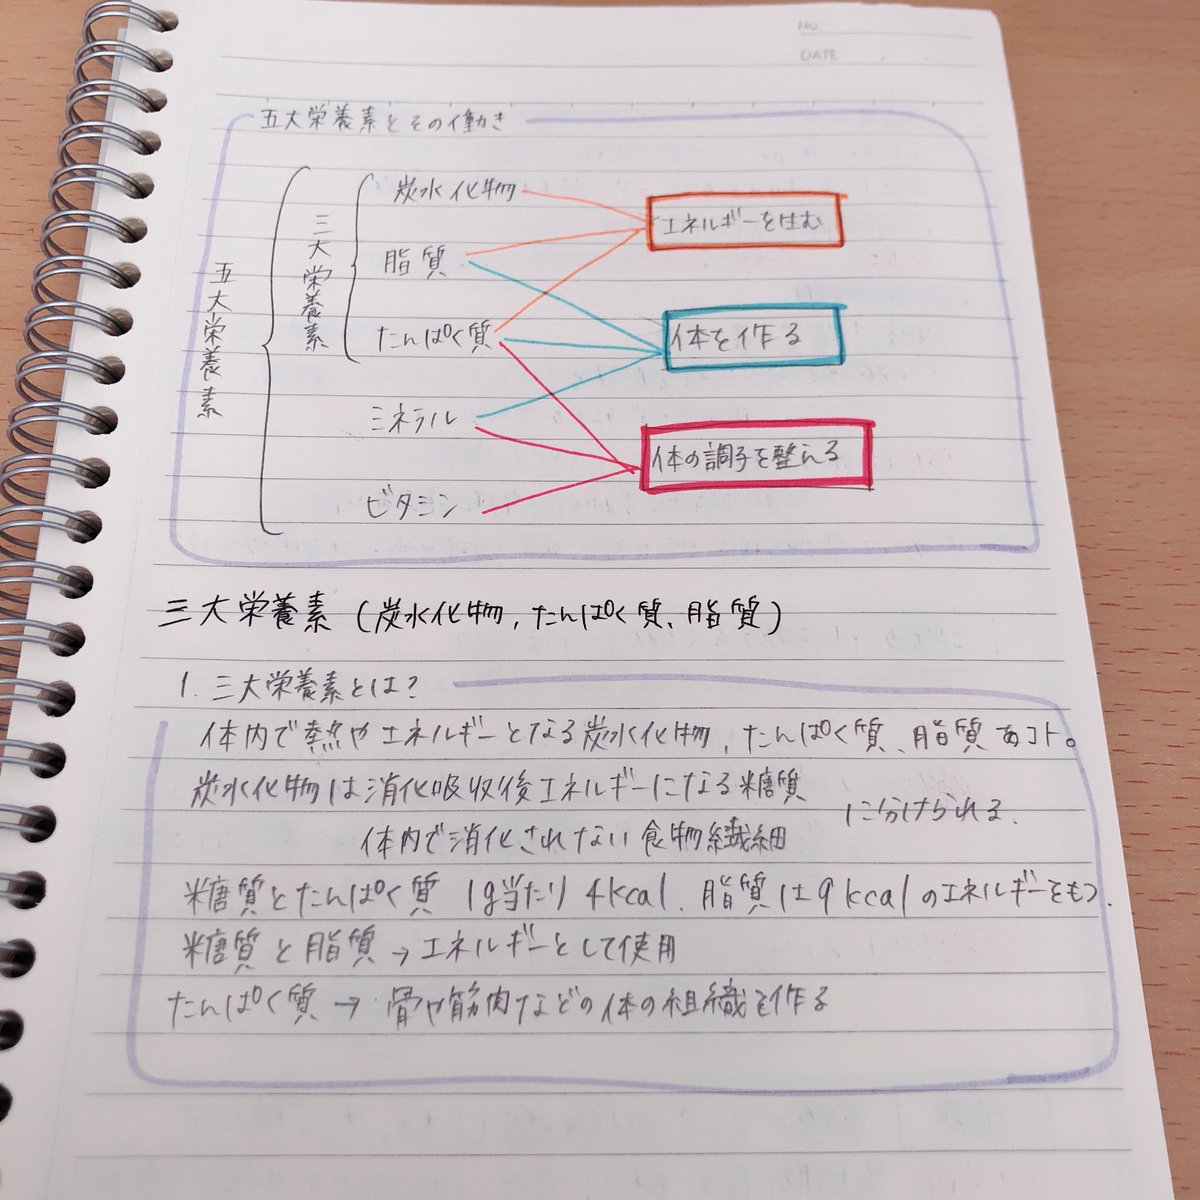 No.
DATE
五大栄養素とその働き
五大栄養素
三大栄養素
炭水化物
脂質
たんぱく質
ミネラル
ビタミン
エネルギーをはむ
体を作る
体の調子を整える
三大栄養素(炭水化物,たんぱく質、脂質)
1. 三大栄養素とは?
体内で熱やエネルギーとなる炭水化物,たんぱく質、脂質のコト。
炭水化物は消化吸収後エネルギーになる糖質
に分けられる.
体内で消化されない食物繊細
糖質とたんぱく質 1g当たり4kcal、脂質は9kcalのエネルギーをもつ.
糖質と脂質→エネルギーとして使用
たんぱく質→骨や筋肉などの体の組織を作る